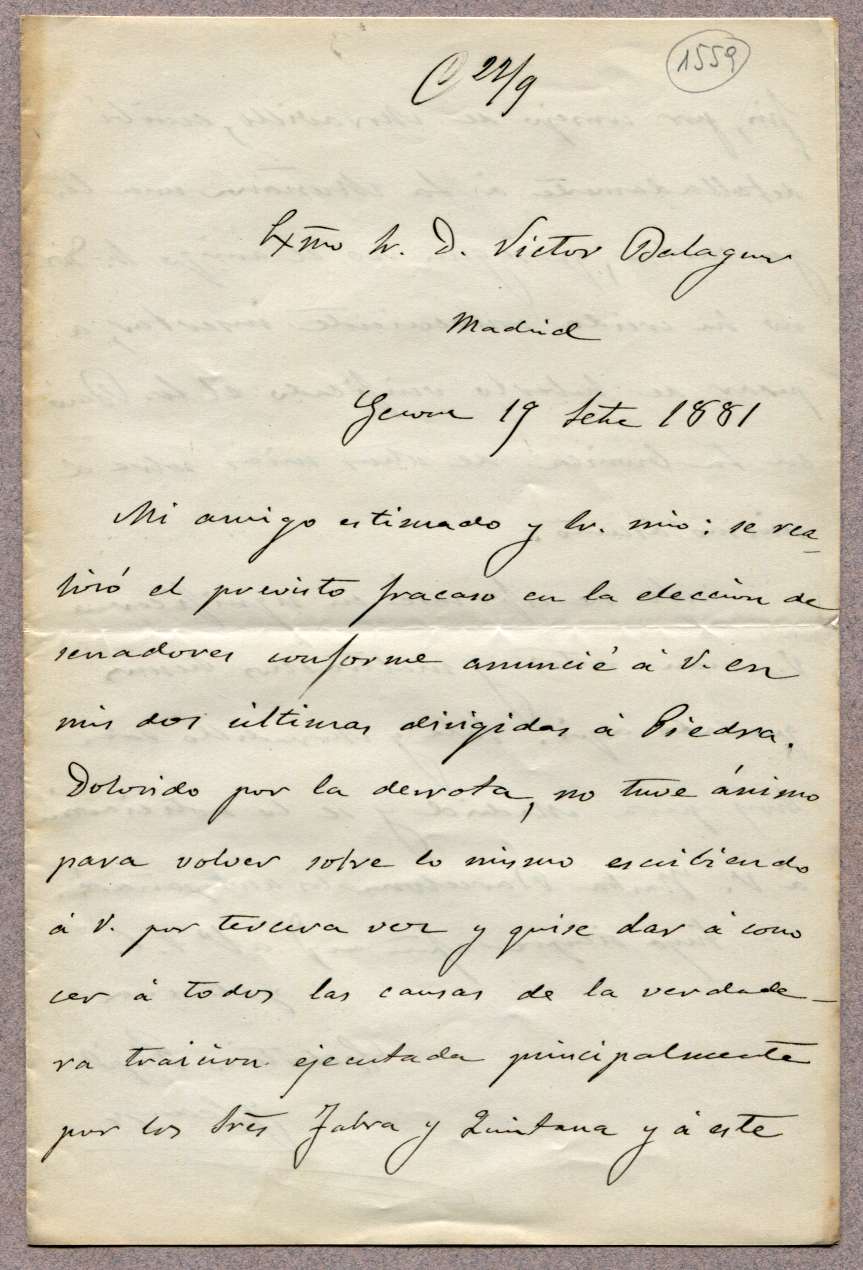 C 22/9
1559
Exmo Sr. D. Victor Balaguer
Madrid
Gerona 19 Setbe 1881
Mi amigo estimado y Sr. mio: se rea-
lizó el previsto fracaso en la eleccion de
senadores conforme anuncié á V. en
mis dos últimas dirigidas á Piedra.
Dolorido por la derrota, no tuve ánimo
para volver sobre lo mismo escribiendo
á V. por tercera vez y quise dar á cono
cer á todos las causas de la verdade-
ra traicion ejecutada principalmente
por los Sres Fabra y Quintana y á este